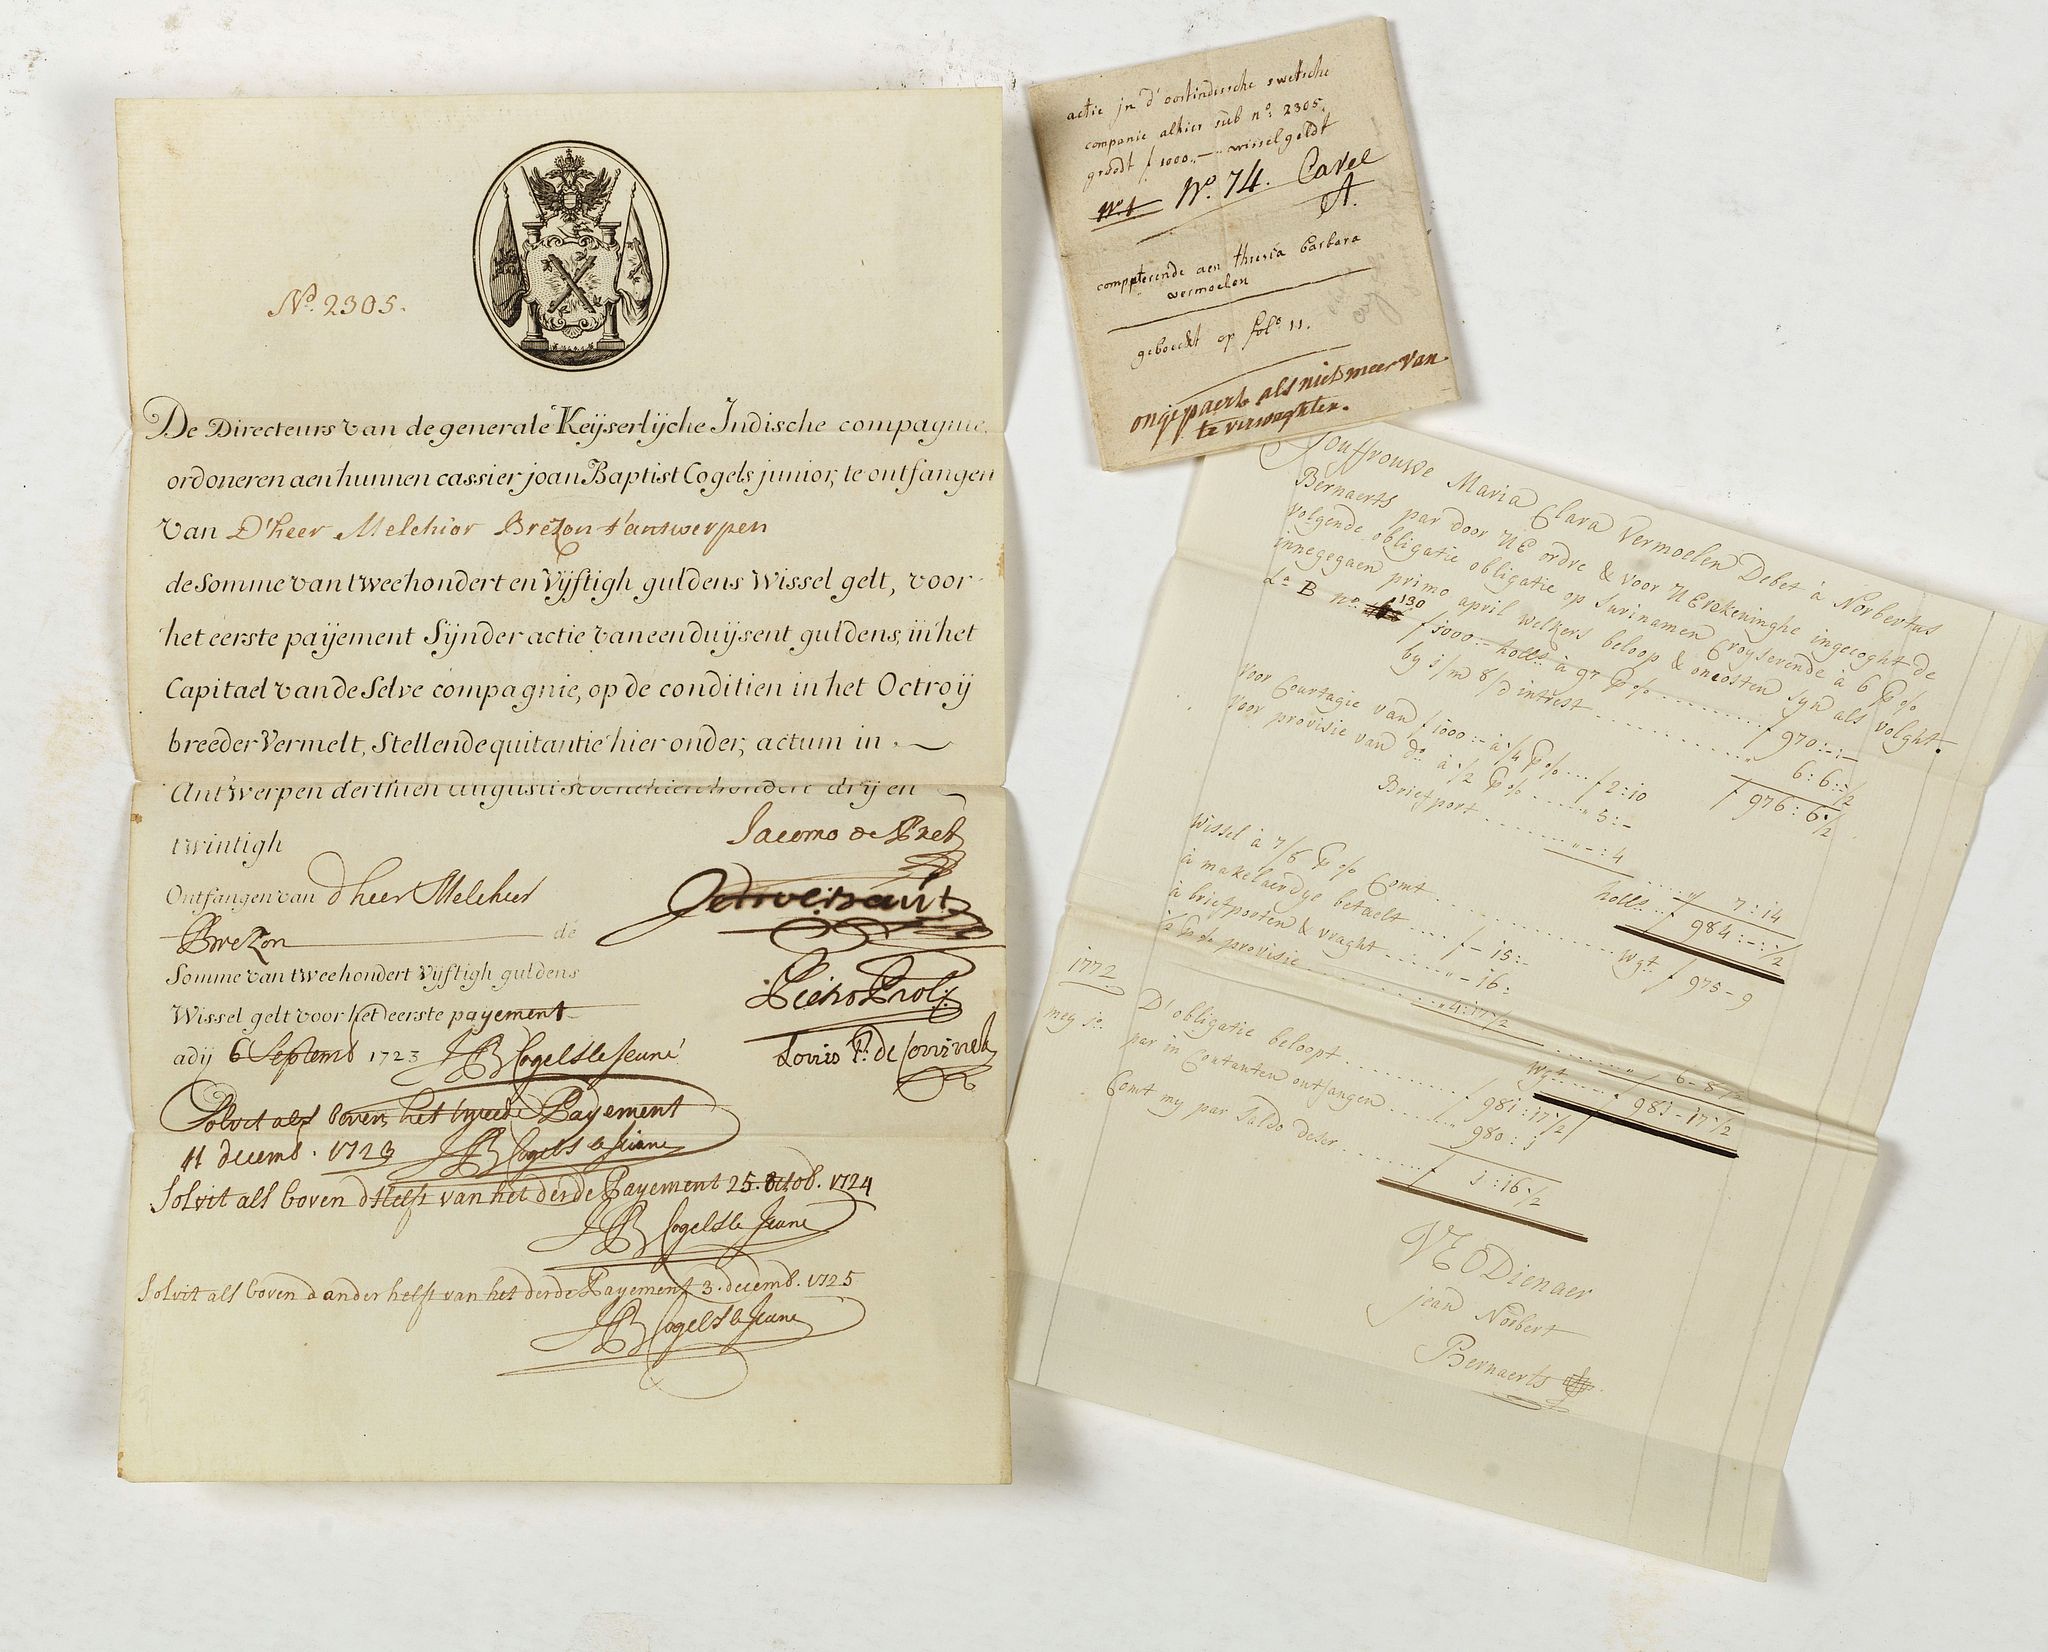 No. 2305.
De Directeurs van de generale Keyserlyche Indische compagnie,
ordoneren aen hunnen cassier joan Baptist Cogels junior, te ontfangen
van D'heer Melchior Brezon t'antwerpen
de Somme van tweehondert en vyftigh guldens wissel gelt, voor
het eerste payement Synder actie van een duysent guldens, in het
Capitael van de Selve compagnie, op de conditien in het Octroy
breeder vermelt, Stellende quitantie hier onder, actum in
Antwerpen derthien augusti seventhien hondert dry en
twintigh
Jacomo de Pret
Ontfangen van d'heer Melchior
Brezon de
Somme van tweehondert vyftigh guldens
Wissel gelt voor het eerste payement
adij 6 Septemb 1723 JB Cogels le Jeune
Pietro Proli
Lovis F. de Coninck
Solvit als boven het tweede Payement
11 decemb. 1723 JB Cogels le Jeune
Solvit als boven d'Helft van het derde Payement 25. octob. 1724
JB Cogels le Jeune
Solvit als boven d ander helft van het derde Payement 3. decemb. 1725
JB Cogels le Jeune
actie jn d'oostindissche swetsche
companie alhier sub no: 2305.
groodt f 1000,,—,, wisselgeldt
No. 1 No. 74. Cavel
A.
competerende aen thresia barbara
vermoelen
geboeckt op folo 11.
ongepaert als niet meer van
te verwaghten.
Jouffrouwe Maria Clara Vermoelen Debet à Norbertus
Bernaerts par door UE ordre & voor UE rekeninghe ingecoght de
volgende obligatie obligatie op Surinamen Croyserende à 6 P%
innegegaen primo april welkers beloop & oncosten syn als volght.
La B no. 130 f 1000:- holls. à 97 P% ..... f 970:-:-
by 1/m 8/d intrest ..... " 6:6:1/2
f 976:6:1/2
Voor Courtagie van f 1000:- à 1/4 P% ... f 2:10
Voor provisie van do. à 1/2 P% ..... " 5:-
Briefport ..... " -:4
..... " 7:14
holls. .. f 984:-:1/2
Wissel à 7/8 P% Comt ..... Wgt. f 975-9
à makelaerdye betaelt .... f - 15:-
à briefporten & vraght ..... " - 16:
1/2 P% provisie ..... " 4:17 1/2
..... " 6-8 1/2
Wgt. .... f 981-17:1/2
1772
mey jo. D'obligatie beloopt ..... f 981:17:1/2
par in Contanten ontfangen ..... " 980:1
Comt my par Saldo deser ..... f 1:16 1/2
VEODienaer
jean Norbert
Bernaerts